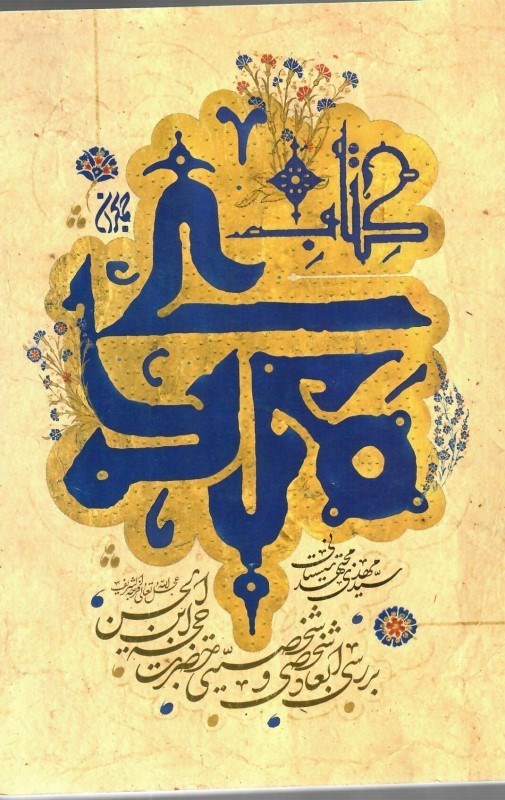 کتاب
جمکران
سید مهدی مجتهد سیستانی
بررسی ابعاد شخصی و شخصیتی حضرت حجة ابن الحسن
عجل الله تعالی فرجه الشریف